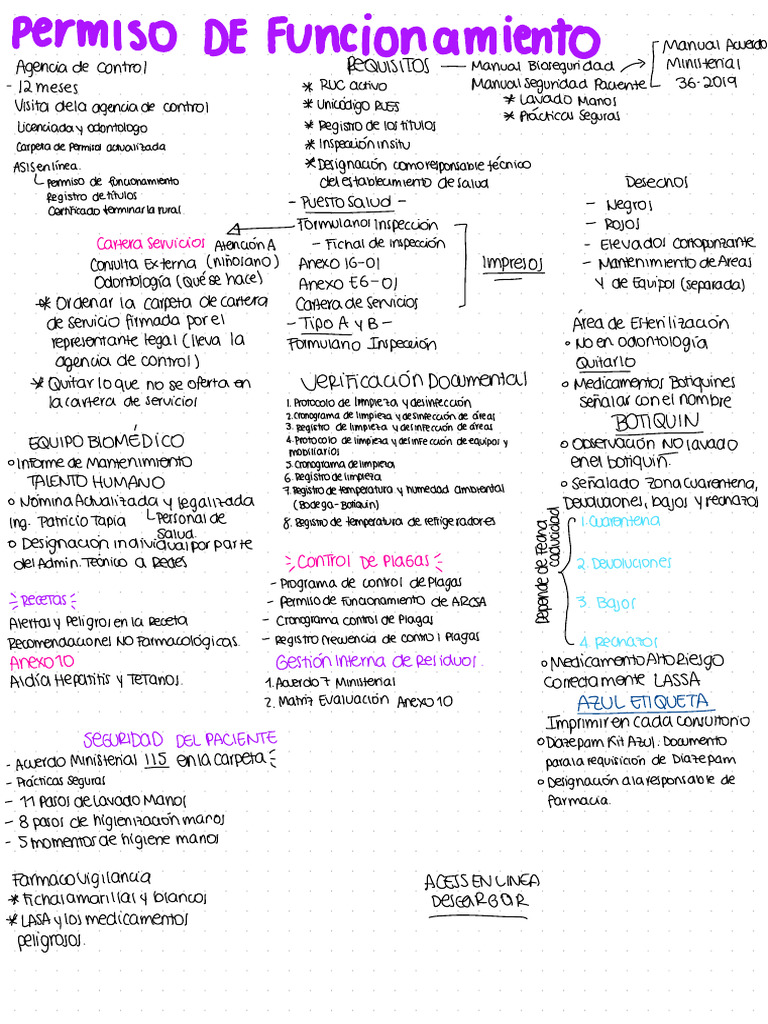 Permiso DE Funcionamiento
Agencia de control
- 12 meses
Visita dela agencia de control
Licenciada y odontologo
Carpeta de Permisos actualizada
ASIS en línea.
Permiso de funcionamiento
Registro de títulos
Certificado terminar la rural
REQUISITOS
* RUC activo
* Unicódigo RUES
* Registro de los títulos
* Inspección insitu
* Designación como responsable técnico
del establecimiento de salud
Manual Bioseguridad
Manual Seguridad Paciente
* Lavado Manos
* Prácticas Seguras
Manual Acuerdo
Ministerial
36-2019
- Puesto Salud -
Formularios Inspección
- Fichas de Inspección
Anexo IG-01
Anexo E6-01
Cartera de Servicios
IMPRESOS
- Tipo A y B -
Formulario Inspección
Cartera Servicios Atención A
Consulta Externa (niño sano)
Odontología (Qué se hace)
* Ordenar la carpeta de cartera
de servicio firmada por el
representante legal (lleva la
agencia de control)
* Quitar lo que no se oferta en
la cartera de servicios
Desechos
- Negros
- Rojos
- Elevados Cortopunzante
- Mantenimiento de Areas
Y de Equipos (separada)
Área de Esterilización
o No en odontología
Quitarlo
o Medicamentos Botiquines
señalar con el nombre
BOTIQUIN
o Observación NO lavado
en el botiquín.
o Señalado Zona Cuarentena,
Devoluciones, bajos y rechazos
Depende de Fecha
caducidad
1. Cuarentena
2. Devoluciones
3. Bajos
4. Rechazos
o Medicamento Alto Riesgo
Correctamente LASSA
AZUL ETIQUETA
Imprimir en cada consultorio
o Diazepam Kit Azul. Documento
para la requisición de Diazepam
o Designación a la responsable de
Farmacia.
Verificación Documental
1. Protocolo de limpieza y desinfección
2. Cronograma de limpieza y desinfección de áreas
3. Registro de limpieza y desinfección de áreas
4. Protocolo de limpieza y desinfección de equipos y
mobiliarios
5. Cronograma de limpieza
6. Registro de limpieza
7. Registro de temperatura y humedad ambiental
(Bodega - Botiquin)
8. Registro de temperatura de refrigeradores
EQUIPO BIOMÉDICO
o Informe de Mantenimiento
TALENTO HUMANO
o Nómina Actualizada y legalizada
Ing. Patricio Tapia
Personal de
Salud.
o Designación individual por parte
del Admin. Técnico a Redes
Control De Plagas
- Programa de control de Plagas
- Permiso de Funcionamiento de ARCSA
- Cronograma control de Plagas
- Registro Frecuencia de control Plagas
Gestión Interna de Residuos.
1. Acuerdo 7 Ministerial
2. Matriz Evaluación Anexo 10
RECETAS
Alertas y Peligros en la Receta
Recomendaciones NO Farmacológicas.
Anexo 10
Al día Hepatitis y Tétanos.
SEGURIDAD DEL PACIENTE
- Acuerdo Ministerial 115 en la carpeta
- Prácticas seguras
- 11 Pasos de Lavado Manos
- 8 pasos de higienización manos
- 5 momentos de higiene manos
Farmaco Vigilancia
* Fichas amarillas y blancos
* LASA y los medicamentos
peligrosos.
ACESS EN LINEA
DESCARGAR